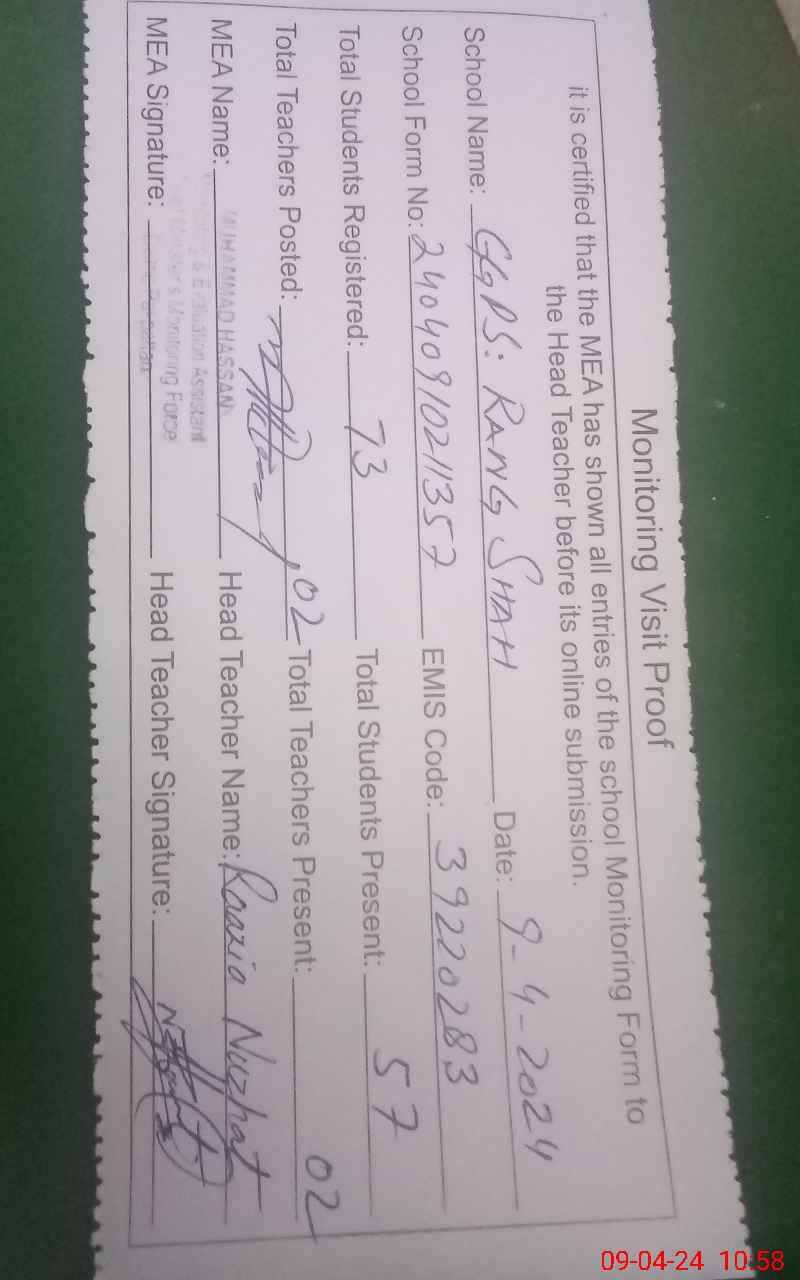 Monitoring Visit Proof
it is certified that the MEA has shown all entries of the school Monitoring Form to
the Head Teacher before its online submission.
School Name: GGPS: RANG SHAH Date: 9-4-2024
School Form No: 24040910211357 EMIS Code: 39220283
Total Students Registered: 73 Total Students Present: 57
Total Teachers Posted: 02 Total Teachers Present: 02
MEA Name: MUHAMMAD HASSAN Head Teacher Name: Raazia Nuzhat
& Evaluation Assistant
Monitoring Force
MEA Signature: Head Teacher Signature:
09-04-24 10:58